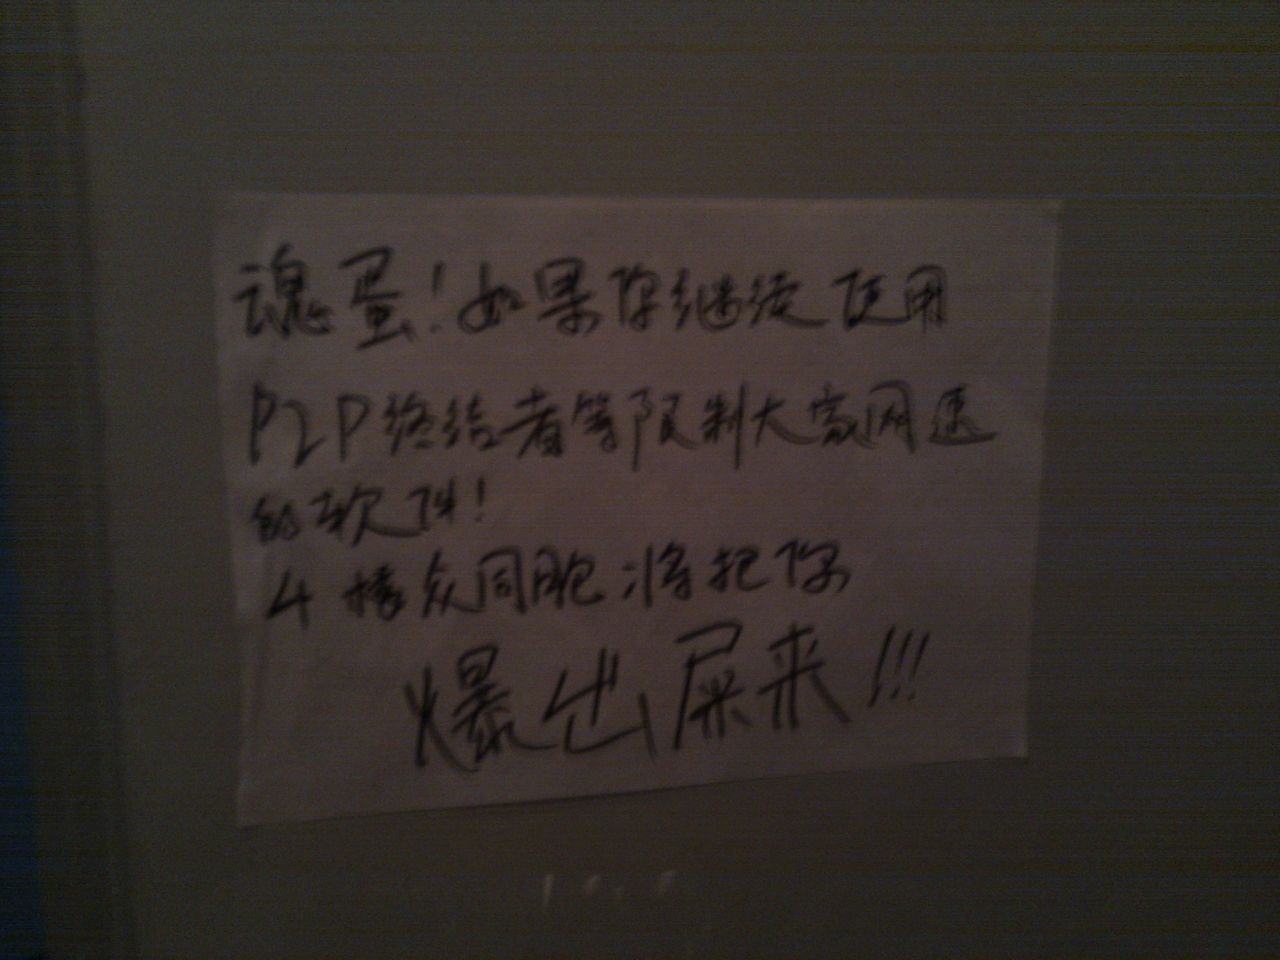 魂蛋!如果你继续使用
P2P终结者等限制大家网速
的软件!
4楼众同胞将把你
爆出屎来!!!